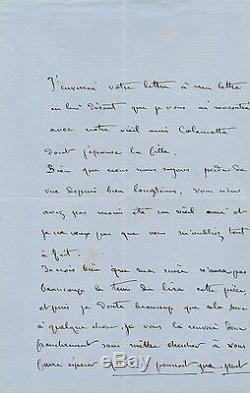 J'enverrai votre lettre à ma lettre
en lui disant que je vous ai rencontré
avec notre vieil ami Calamatta
dont j'épouse la fille.
Bien que nous nous soyons perdus de
vue depuis bien longtems, vous n'en
avez pas moins été un vieil ami et
je ne veux pas que vous m'oubliiez tout
à fait.
Je crois bien que ma mère n'aura pas
beaucoup le tems de lire cette pièce,
et puis je doute beaucoup que cela serve
à quelque chose, je vous la renvoie donc
franchement sans même chercher à vous
faire espérer pourrait que peut